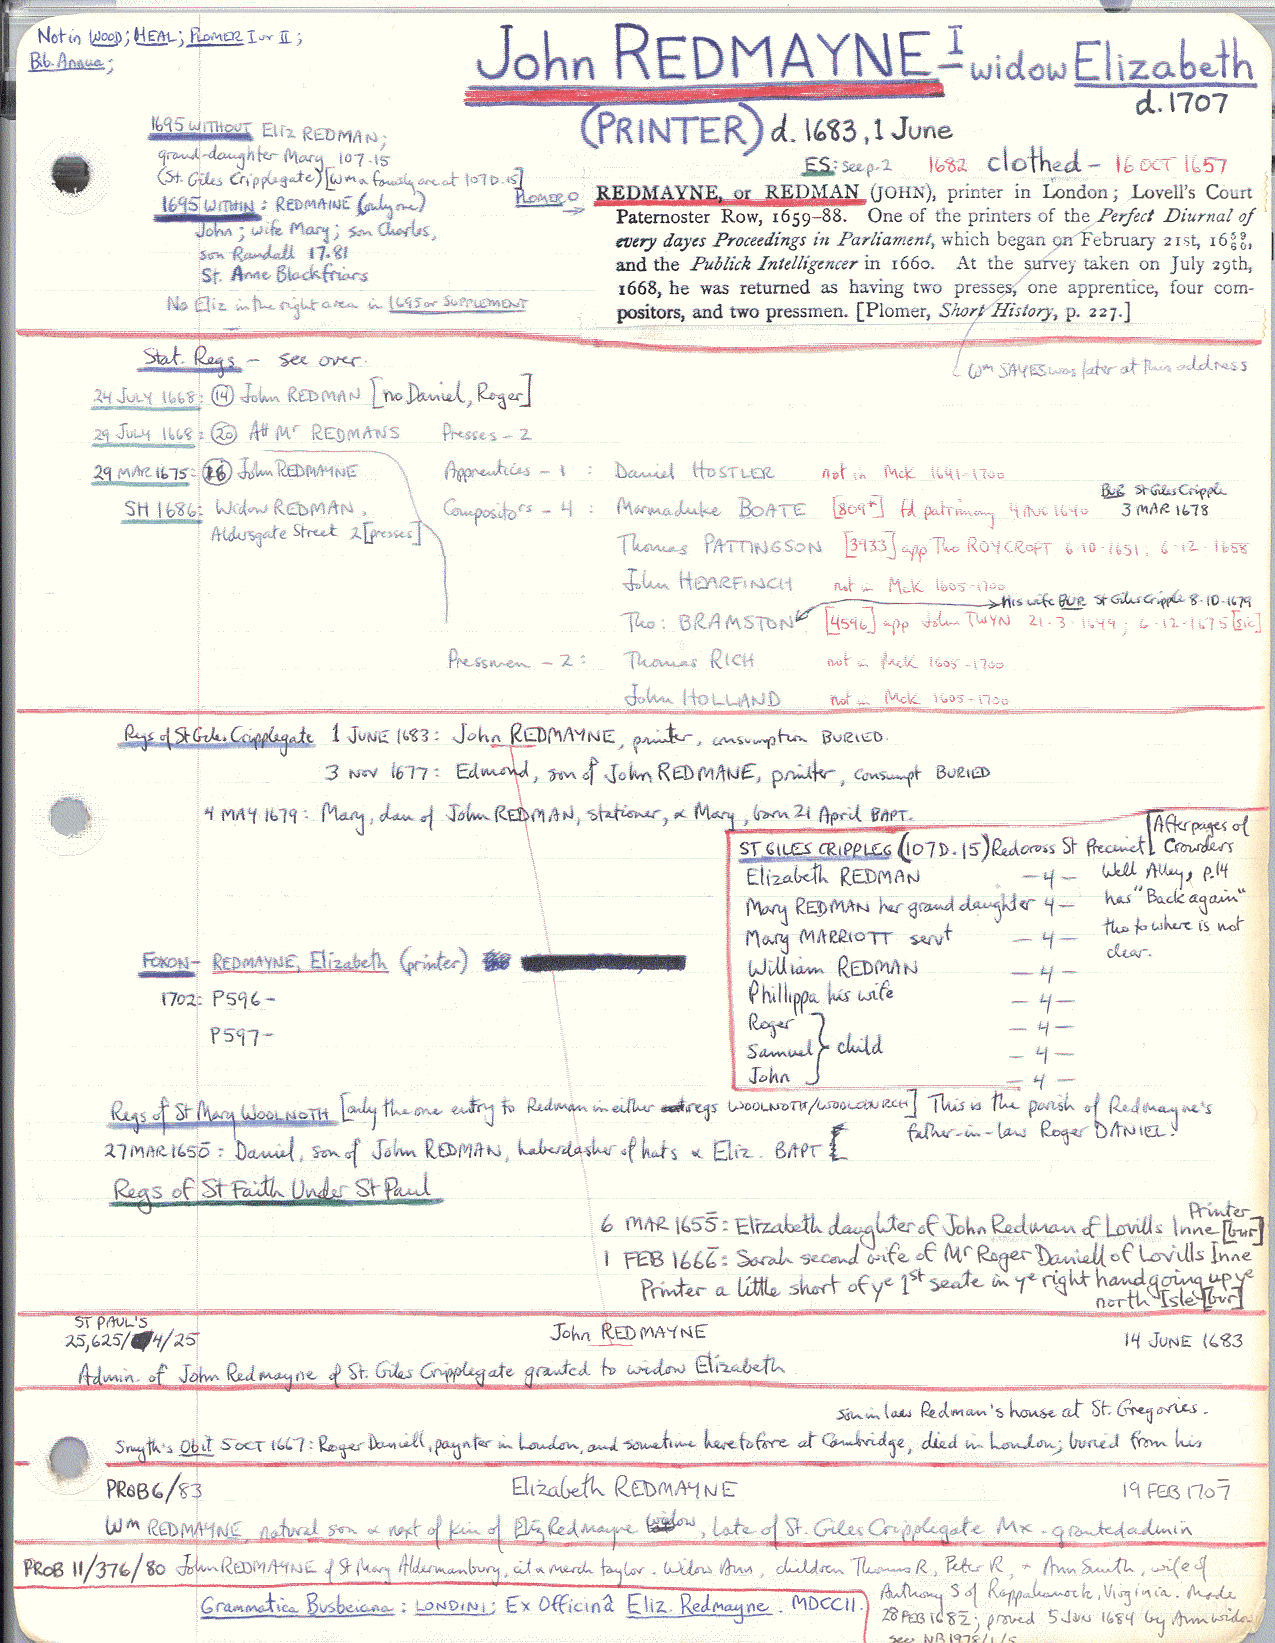 Not in WOOD; HEAL; PLOMER I or II;
Bib. Annua;
John REDMAYNE I widow Elizabeth
d. 1707
(PRINTER) d. 1683, 1 June
1695 WITHOUT Eliz REDMAN;
grand-daughter Mary 107.15
(St. Giles Cripplegate) [Wm & family are at 107D.15]
1695 WITHIN: REDMAINE (only one)
John; wife Mary; son Charles,
son Randall 17.81
St. Anne Blackfriars
No Eliz in the right area in 1695 or SUPPLEMENT
ES: see p. 2 1682 clothed - 16 OCT 1657
PLOMER
REDMAYNE, or REDMAN (JOHN), printer in London; Lovell's Court
Paternoster Row, 1659-88. One of the printers of the Perfect Diurnal of
every dayes Proceedings in Parliament, which began on February 21st, 16 59/60,
and the Publick Intelligencer in 1660. At the survey taken on July 29th,
1668, he was returned as having two presses, one apprentice, four com-
positors, and two pressmen. [Plomer, Short History, p. 227.]
Wm SAYES was later at this address
Stat. Regs - see over.
24 JULY 1668: (14) John REDMAN [no Daniel, Roger]
29 JULY 1668: (20) Att Mr REDMANS Presses - 2
29 MAR 1675: (16) John REDMAYNE Apprentices - 1 : Daniel HOSTLER not in McK 1641-1700
SH 1686: Widow REDMAN, Compositors - 4 : Marmaduke BOATE [809*] fd patrimony 4 AUG 1640 BUR St Giles Cripple 3 MAR 1678
Aldersgate Street 2 [presses]
Thomas PATTINGSON [3933] app Tho ROYCROFT 6-10-1651; 6-12-1658
John HEARFINCH not in McK 1605-1700
His wife BUR St Giles Cripple 8.10.1679
Tho: BRAMSTON [4596] app John TWYN 21-3-1649; 6-12-1675 [sic]
Pressmen - 2 : Thomas RICH not in McK 1605-1700
John HOLLAND not in McK 1605-1700
Regs of St Giles Cripplegate 1 JUNE 1683: John REDMAYNE, printer, consumption BURIED.
3 NOV 1677: Edmond, son of John REDMANE, printer, consumpt BURIED
4 MAY 1679: Mary, dau of John REDMAN, stationer, & Mary, born 21 April BAPT.
ST GILES CRIPPLEG (107D.15) Redcross St Precinct [After pages of
Crowders
Well Alley, p.14
has "Back again"
tho to where is not
clear.
Elizabeth REDMAN - 4 -
Mary REDMAN her grand daughter 4 -
Mary MARRIOTT servt - 4 -
William REDMAN - 4 -
Phillippa his wife - 4 -
Roger - 4 -
Samuel } child - 4 -
John - 4 -
FOXON - REDMAYNE, Elizabeth (printer)
1702: P596 -
P597 -
Regs of St Mary WOOLNOTH [only the one entry to Redman in either regs WOOLNOTH/WOOLCHURCH] This is the parish of Redmayne's
father-in-law Roger DANIEL.
27 MAR 1650: Daniel, son of John REDMAN, haberdasher of hats & Eliz. BAPT
Regs of St Faith Under St Paul
6 MAR 1655: Elizabeth daughter of John Redman of Lovills Inne Printer [bur]
1 FEB 1666: Sarah second wife of Mr Roger Daniell of Lovills Inne
Printer a little short of ye 1st seate in ye right hand going up ye
north Isle [bur]
ST PAUL'S
25,625/ 4/25 John REDMAYNE 14 JUNE 1683
Admin. of John Redmayne of St. Giles Cripplegate granted to widow Elizabeth
son in laws Redman's house at St. Gregories.
Smyth's Obit 5 OCT 1667: Roger Daniell, paynter in London, and sometime heretofore at Cambridge, died in London; buried from his
PROB 6/83 Elizabeth REDMAYNE 19 FEB 1707
Wm REDMAYNE natural son & next of kin of Eliz Redmayne widow, late of St. Giles Cripplegate Mx - granted admin
PROB 11/376/80 John REDMAYNE of St Mary Aldermanbury, cit & merch taylor. Widow Ann, children Thomas R, Peter R, + Ann Smith, wife of
Anthony S of Rappahanock, Virginia. Made
28 FEB 1682; proved 5 JUN 1684 by Ann widow
see NB 1978/1/5
Grammatica Busbeiana: LONDINI; Ex Officinâ Eliz. Redmayne. MDCCII.